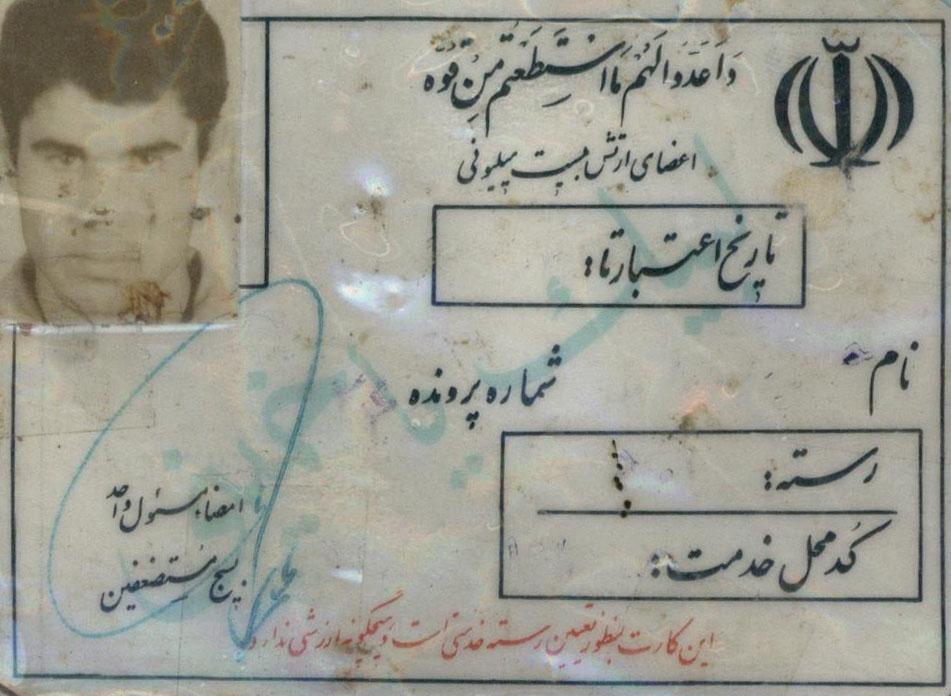 وَاَعِدّوا لَهُم مَا اسْتَطَعْتُم مِن قُوَّه
اعضای ارتش بیست میلیونی
تاریخ اعتبار تا:
نام
شماره پرونده
رسته:
کد محل خدمت:
امضاء مسئول واحد
بسیج مستضعفین
این کارت بمنظور تعیین رسته خدمتی است و هیچگونه ارزشی ندارد